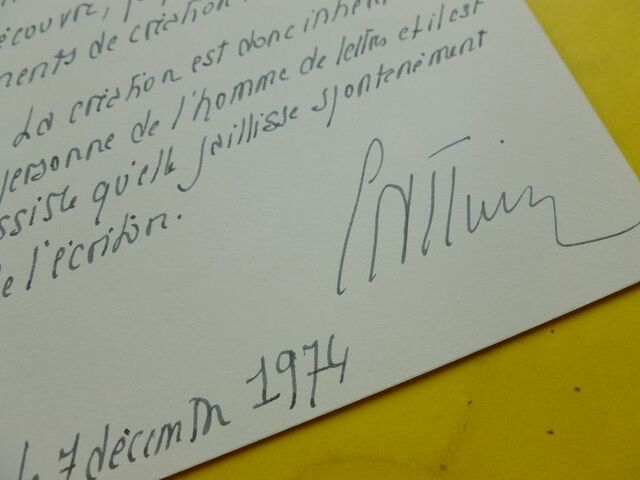 écouvre,
ments de création
La création est donc inhér
personne de l'homme de lettres et il est
ssible qu'elle jaillisse spontanément
de l'écriton.
le 7 décembre 1974